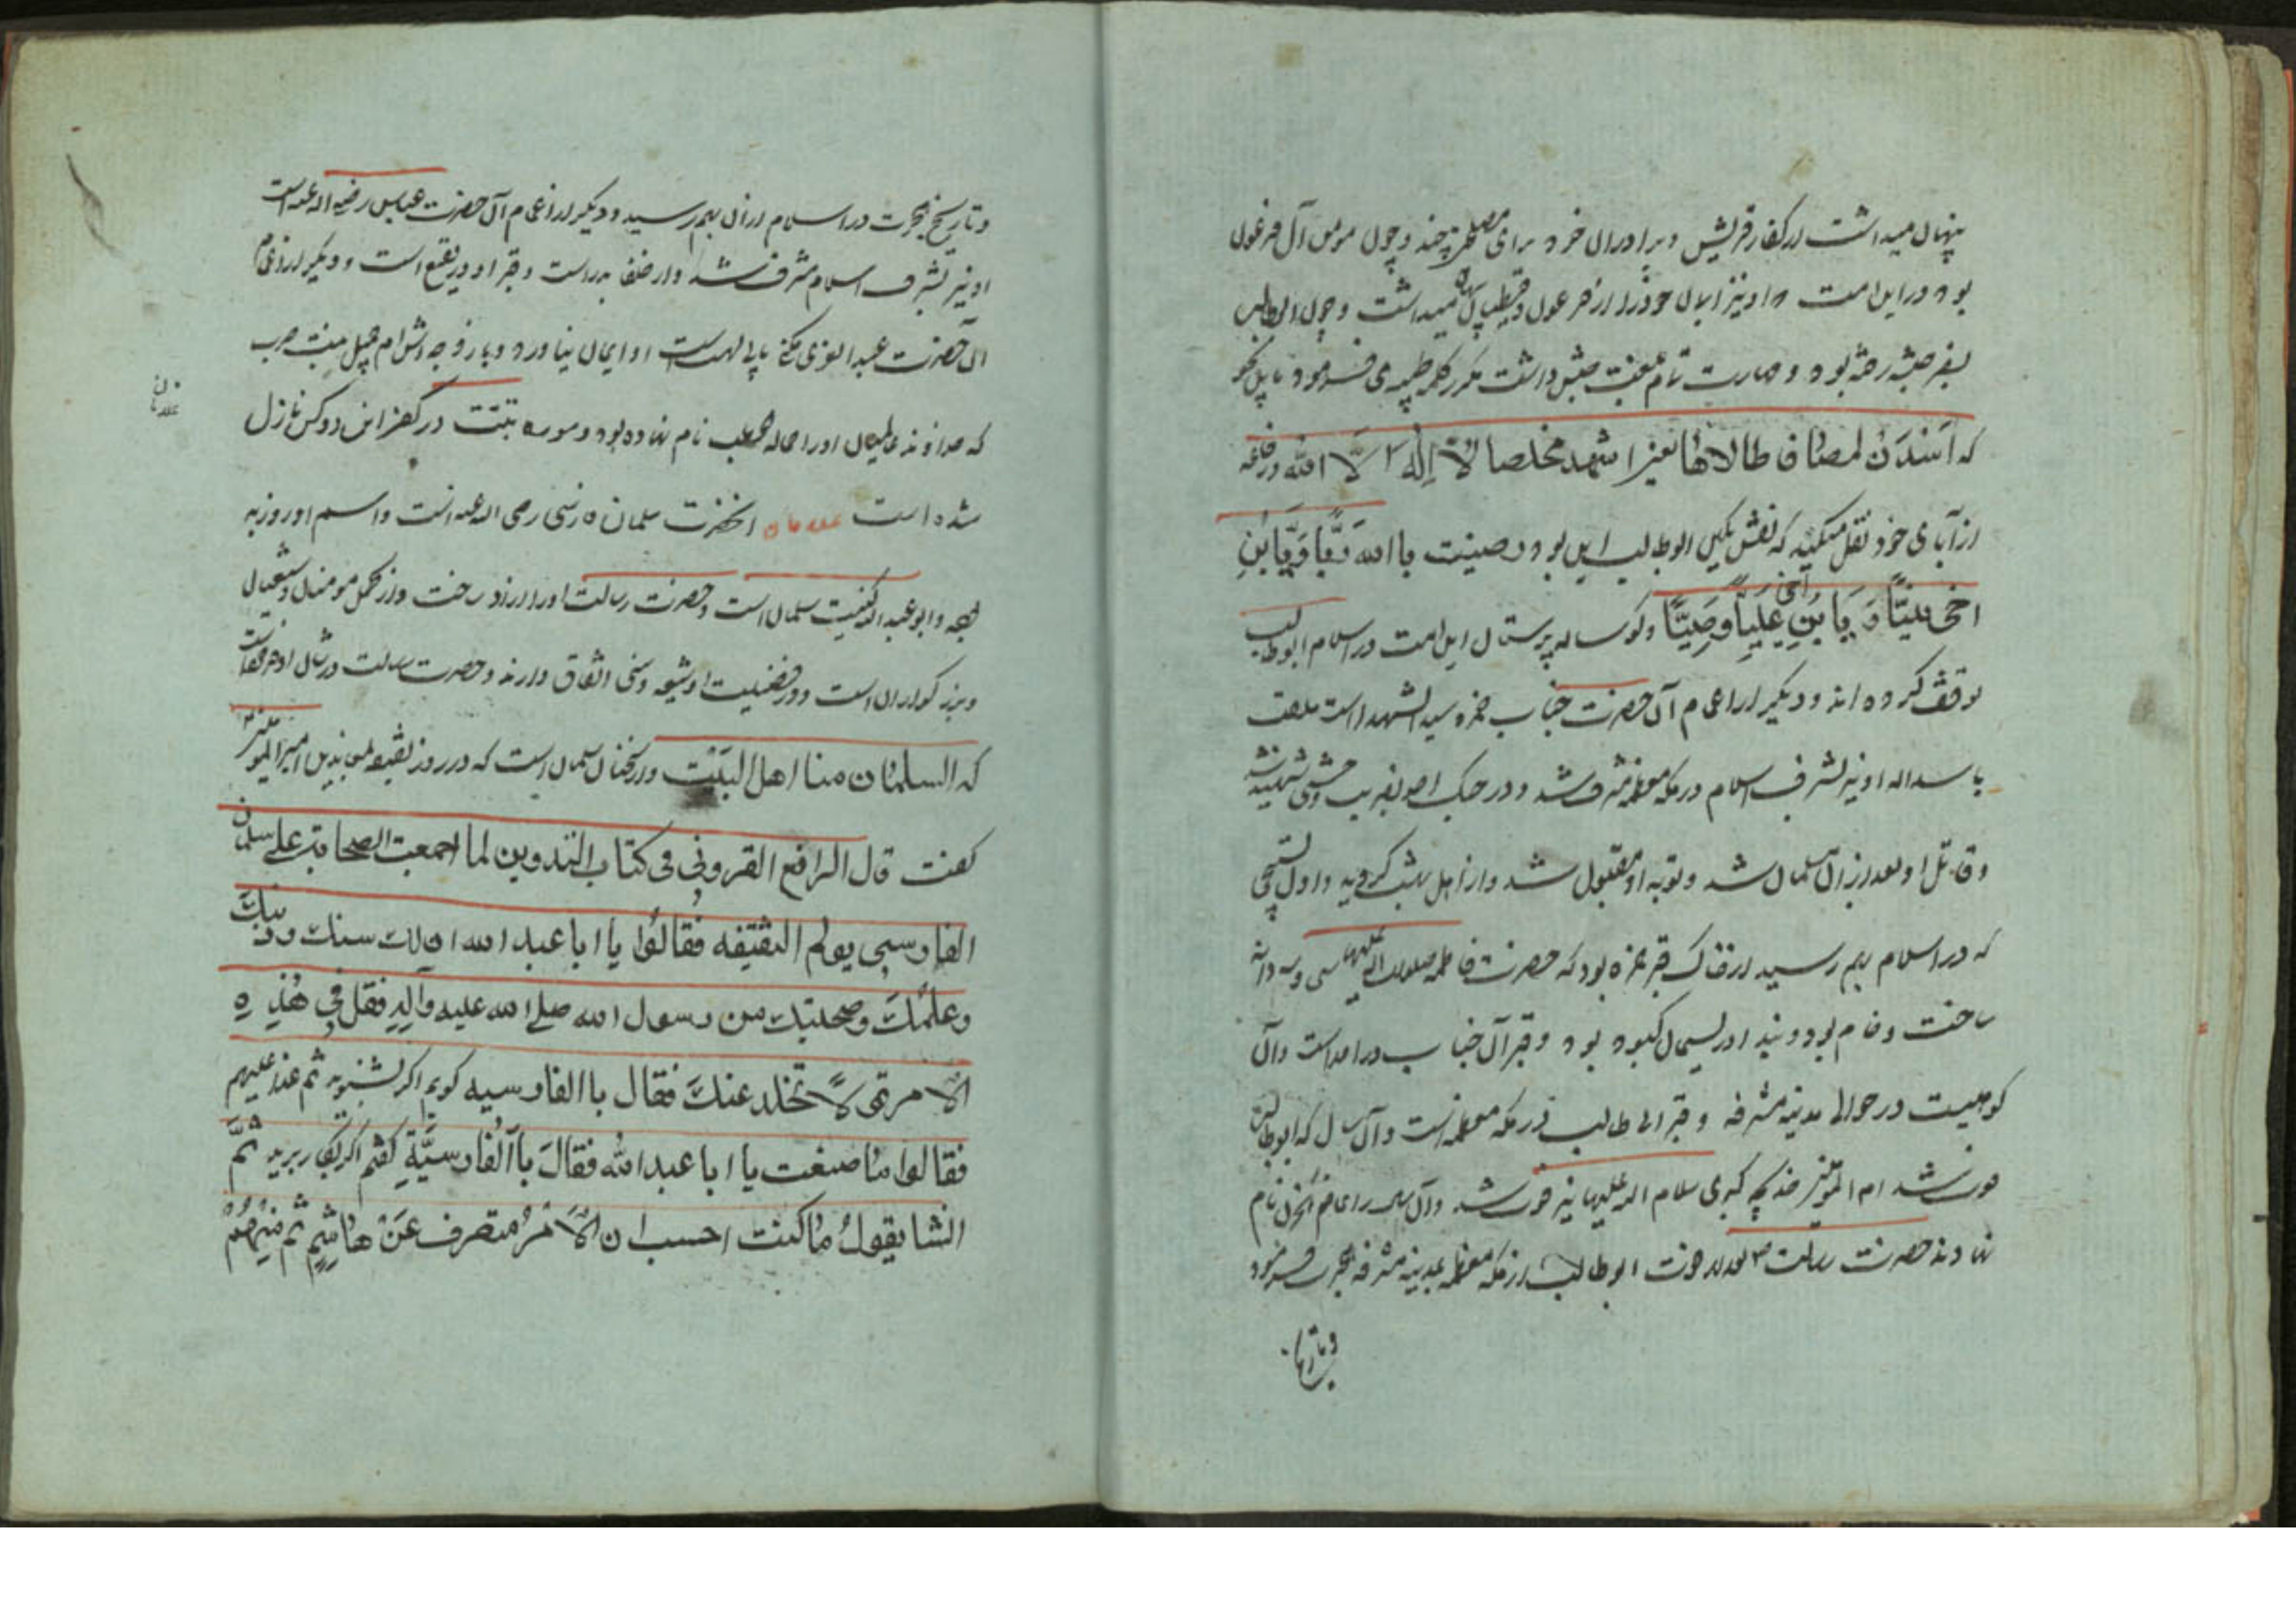 پنهان میداشت از کفار قریش و برادران خود برای مصلحتی چند و چون مومن آل فرعون
بوده در این امت و او نیز ایمان خود را از فرعون و قبطیان پنهان میداشت و چون ابوطالب
بسفر حبشه رفته بود و مهارت تام بلغت حبش داشت مکرر کلمه طیبه می فرمود
که اسندن لمصاف طالاها یعنی اشهد مخلصا لا اله الا الله و رفاعه
از آبای خود نقل میکند که نقش نگین ابوطالب این بود رضیت باالله ربا و بابن
اخی نبیا و یا بنی علیا وصیا و گوساله پرستان این امت در اسلام ابوطالب
توقف کرده اند و دیگر از اعمام آن حضرت جناب حمزه سید الشهدا است ملقب
باسد اله او نیز بشرف اسلام در مکه معظمه مشرف شد و در جنک احد بضرب وحشی شهید شد
و قاتل او بعد از آن مسلمان شد و توبه او مقبول شد و از اهل بهشت گردید و اول تسبیحی
که در اسلام بهم رسید از خاک قبر حمزه بود که حضرت فاطمه صلوات الله علیها سی و سه دانه
ساخت و خام بود و بند او ریسمان کبود بود و قبر آن جناب در احد است و آن
کوهیست در حوالی مدینه مشرفه و قبر ابی طالب در مکه معظمه است و آن سال که ابوطالب
فوت شد ام المؤمنین خدیجه کبری سلام الله علیها نیز فوت شد و آن سال را عام الحزن نام
نهادند حضرت رسالت ص بعد از فوت ابوطالب از مکه معظمه بمدینه مشرفه هجرت فرمود
و تاریخ
و تاریخ هجرت در اسلام از آن بهم رسید و دیگر از اعمام آن حضرت عباس رضی اله عنه است
او نیز بشرف اسلام مشرف شد و ار خلفا بدر است و قبر او در بقیع است و دیگر از اعمام
آن حضرت عبد العزی مکنی بابی لهب است او ایمان نیاورد و با زوجه اش ام جمیل بنت حرب
که خداوند عالمیان او را حماله حطب نام نهاده بود و سوره تبت در کفر این دو کس نازل
شده است غلامان آنحضرت سلمان فارسی رضی اله عنه است و اسم او روزبه
بوده و ابو عبد اله کنیت سلمان است و حضرت رسالت او را آزاد ساخت و از کمل مومنان و شیعیان
و بزرگواران است و در فضیلت او شیعه و سنی اتفاق دارند و حضرت رسالت در شان او فرموده است
که السلمان منا اهل البیت و از سخنان سلمان است که در روز سقیفه امیر المؤمنین
گفت قال الرافع القزونی فی کتاب التدوین لما اجمعت الصحابة علی سلمان
الفارسی یوم الثقیفه فقالوا یا ابا عبد الله ان لك سنك و دینك
و علمك و صحبتك من رسول الله صلی الله علیه و آله فقل فی هذه
الامر لا تخلد عنك فقال باالفارسیه گویم اگر بشنوید ثم غدا علیهم
فقالوا ما صنعت یا ابا عبد الله فقال باالفارسیة گفتم اگر بکار برید ثم
انشا یقول ما کنت احسب ان الامر منصرف عن هاشم ثم منهم